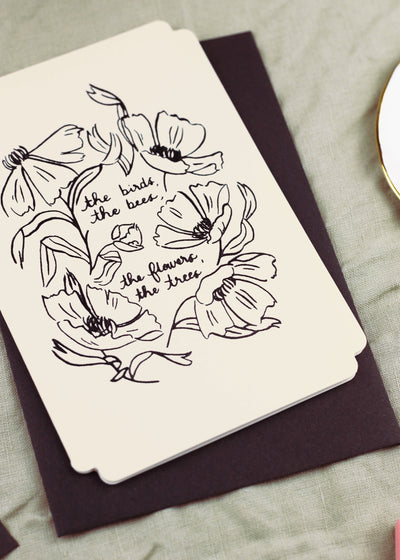 the birds,
the bees,
the flowers,
the trees,